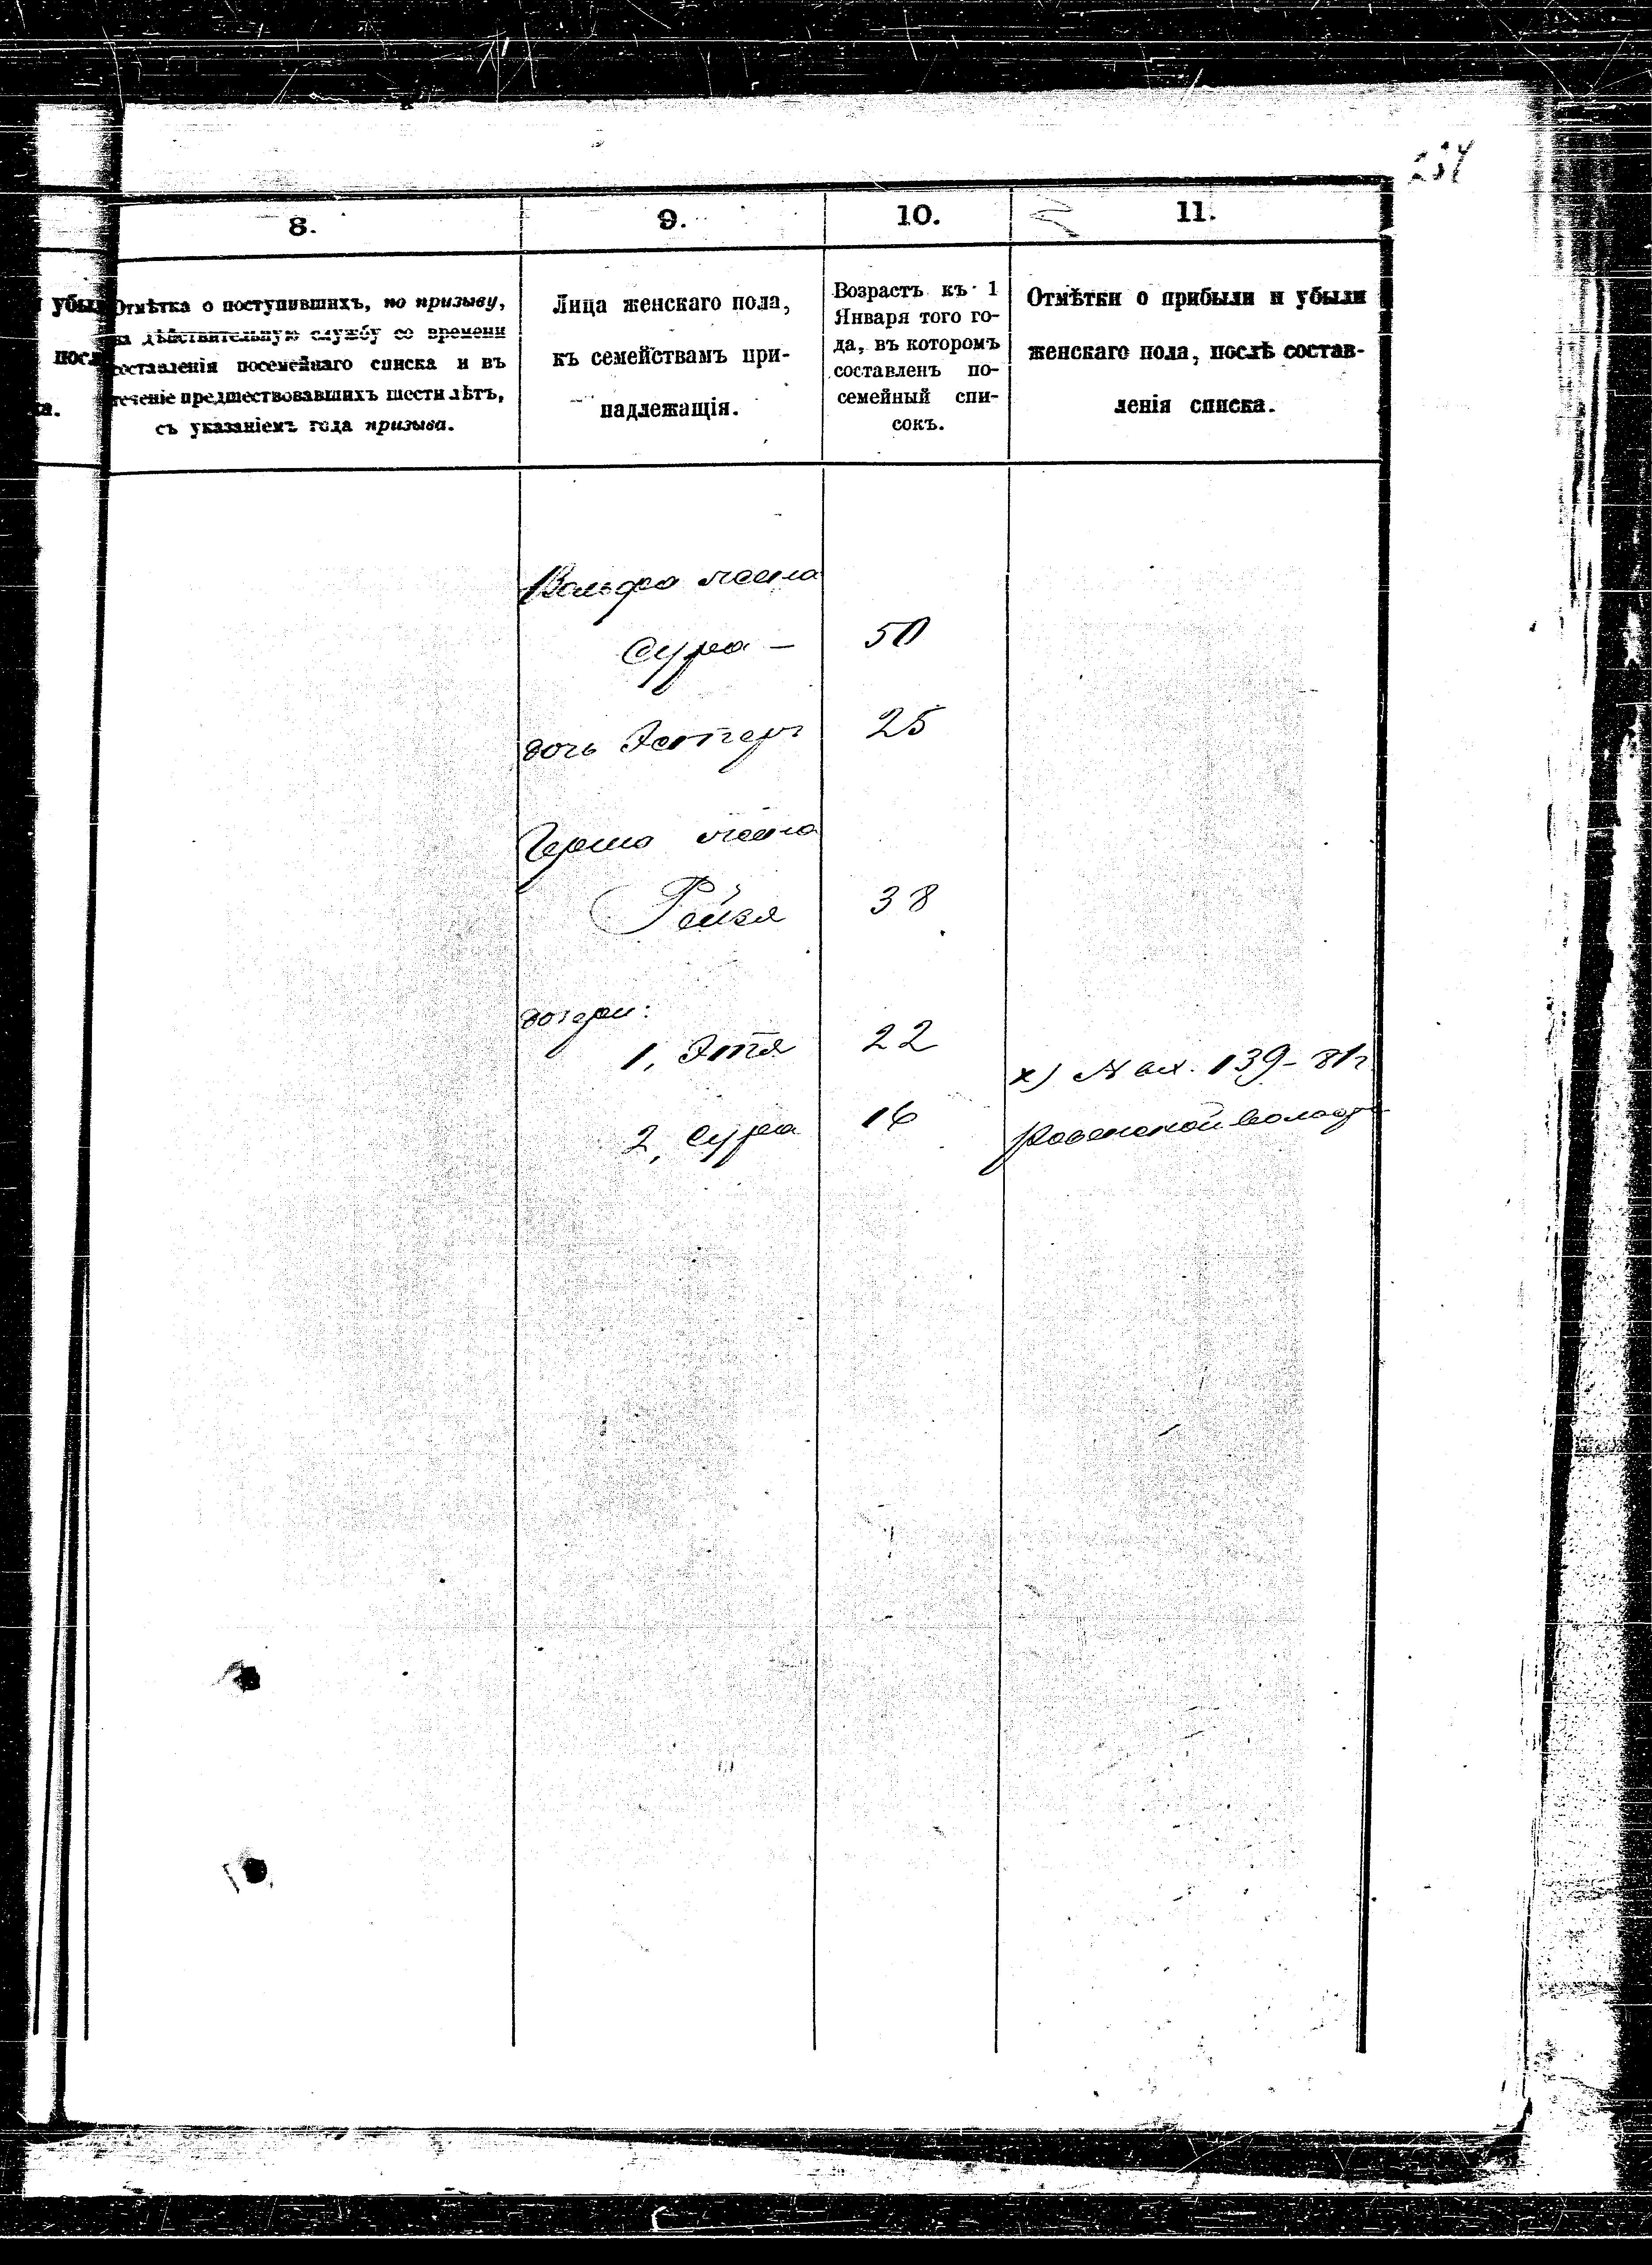 234
8.
9.
10.
11.
убы
посл
ка.
Отмѣтка о поступившихъ, по призыву,
на дѣйствительную службу со времени
составленія посемейнаго списка и въ
теченіе предшествовавшихъ шести лѣтъ,
съ указаніемъ года призыва.
Лица женскаго пола,
къ семействамъ при-
надлежащія.
Возрастъ къ 1
Января того го-
да, въ которомъ
составленъ по-
семейный спи-
сокъ.
Отмѣтки о прибыли и убыли
женскаго пола, послѣ состав-
ленія списка.
Вольфа жена
Сура — 50
дочь Эстеръ 25
Герша жена
Рейзя 38
дочери:
1, Этя 22
2, Сура 16
х) № вх. 139-81г